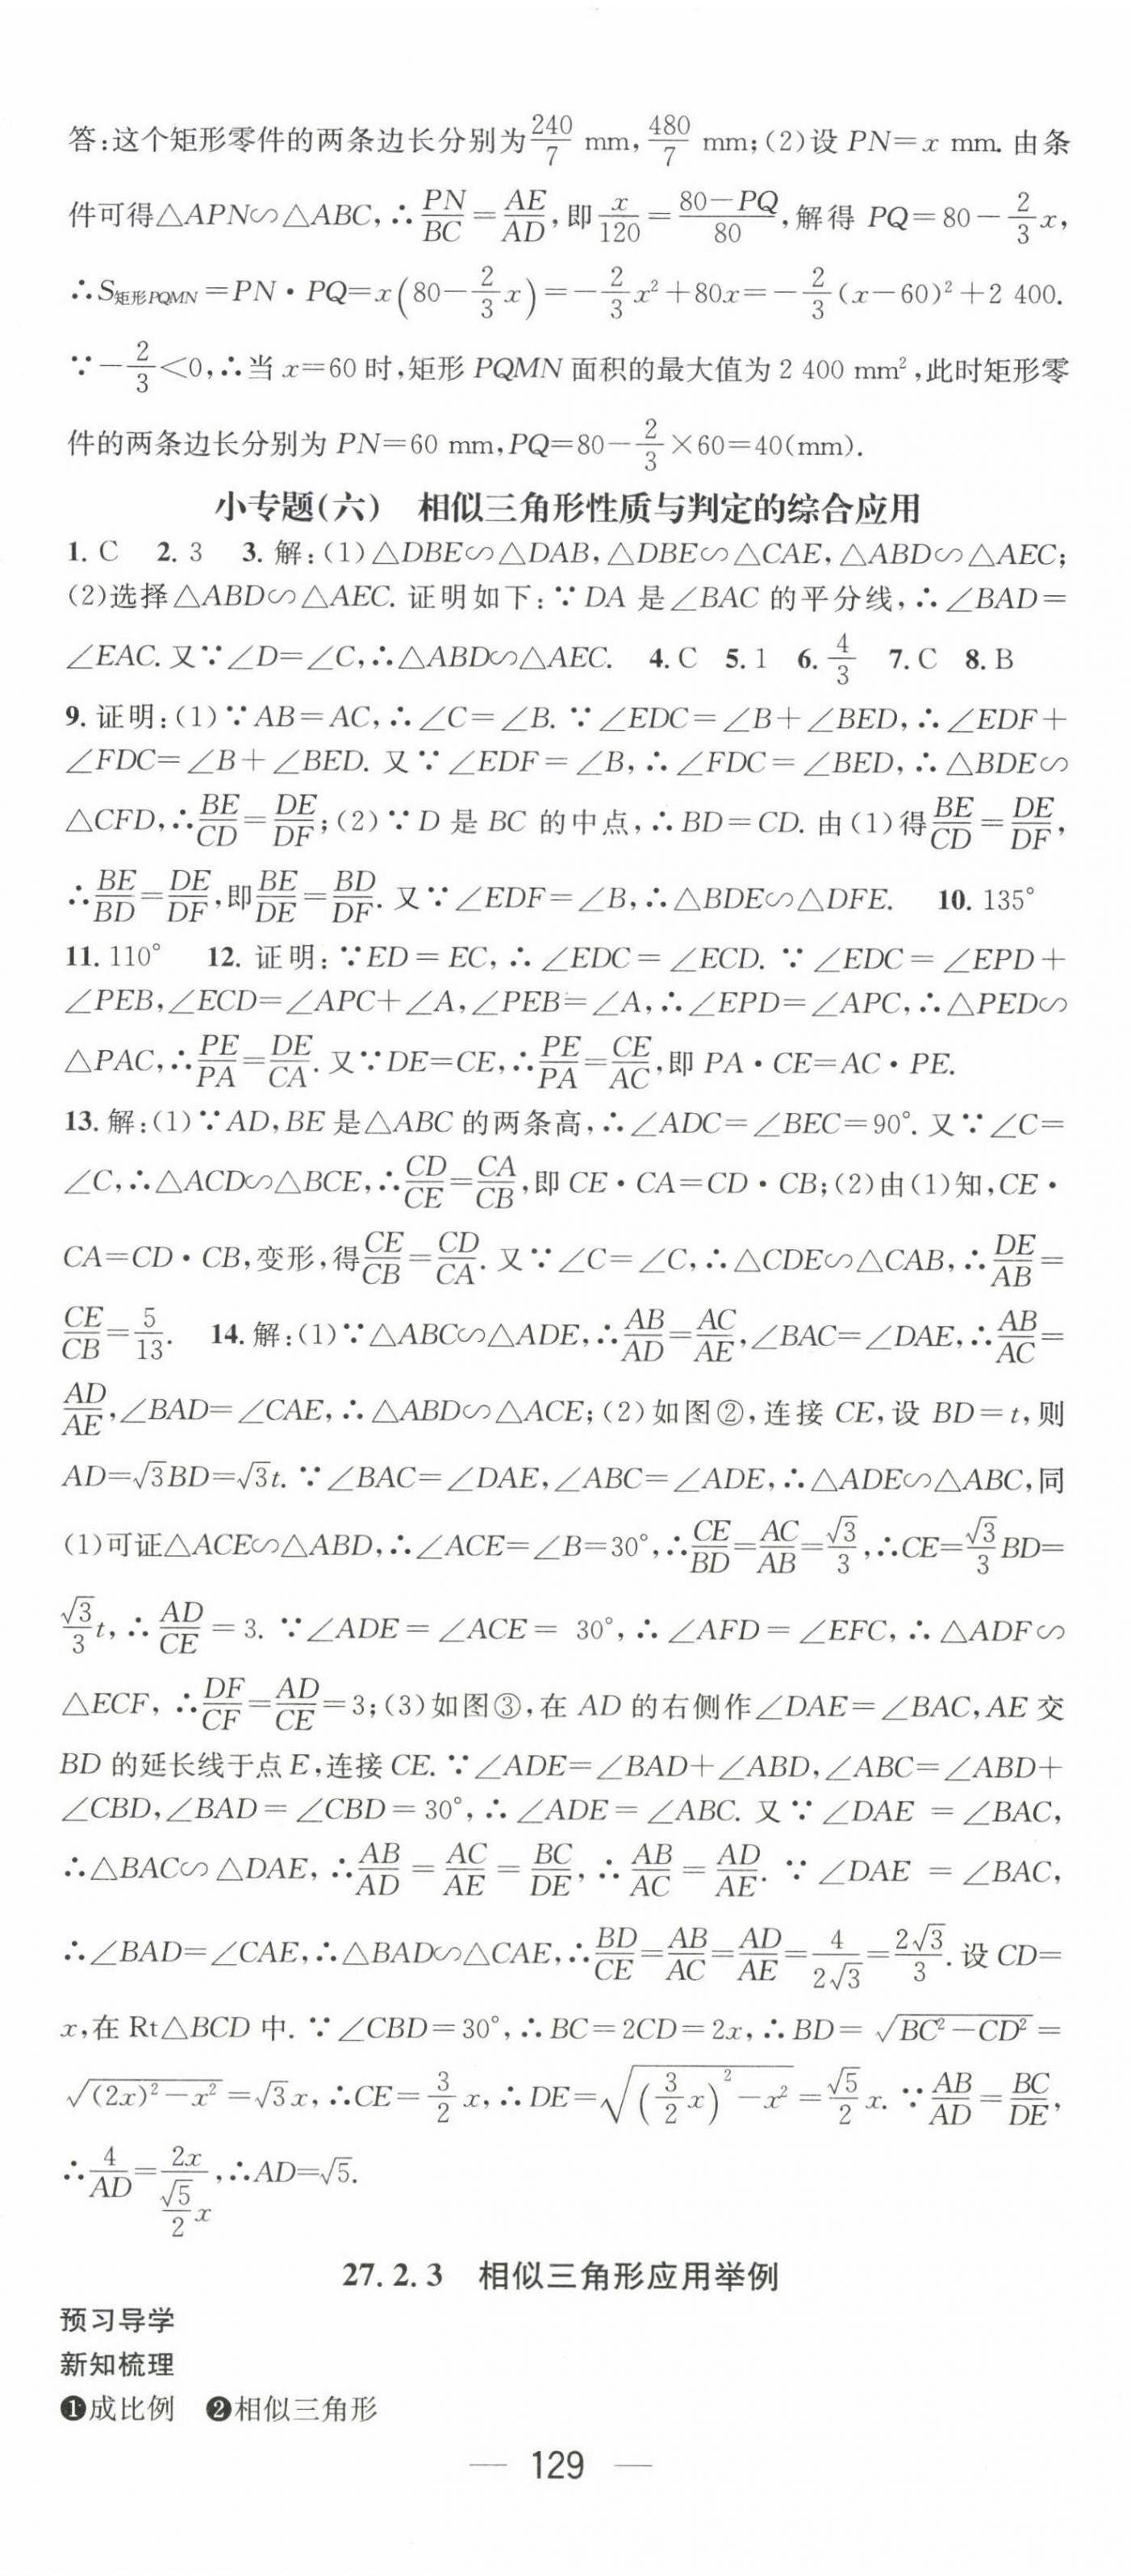 答:这个矩形零件的两条边长分别为240/7 mm,480/7 mm;(2)设 PN=x mm. 由条
件可得△APN∽△ABC,∴PN/BC=AE/AD,即x/120=(80-PQ)/80,解得 PQ=80-2/3x,
∴S矩形PQMN=PN·PQ=x(80-2/3x)=-2/3x²+80x=-2/3(x-60)²+2 400.
∵-2/3<0,∴当 x=60 时,矩形 PQMN 面积的最大值为 2 400 mm²,此时矩形零
件的两条边长分别为 PN=60 mm,PQ=80-2/3×60=40(mm).
小专题(六) 相似三角形性质与判定的综合应用
1. C 2. 3 3. 解:(1)△DBE∽△DAB,△DBE∽△CAE,△ABD∽△AEC;
(2)选择△ABD∽△AEC. 证明如下:∵DA 是∠BAC 的平分线,∴∠BAD=
∠EAC. 又∵∠D=∠C,∴△ABD∽△AEC. 4. C 5. 1 6. 4/3 7. C 8. B
9. 证明:(1)∵AB=AC,∴∠C=∠B. ∵∠EDC=∠B+∠BED,∴∠EDF+
∠FDC=∠B+∠BED. 又∵∠EDF=∠B,∴∠FDC=∠BED,∴△BDE∽
△CFD,∴BE/CD=DE/DF;(2)∵D 是 BC 的中点,∴BD=CD. 由(1)得BE/CD=DE/DF,
∴BE/BD=DE/DF,即BE/DE=BD/DF. 又∵∠EDF=∠B,∴△BDE∽△DFE. 10. 135°
11. 110° 12. 证明:∵ED=EC,∴∠EDC=∠ECD. ∵∠EDC=∠EPD+
∠PEB,∠ECD=∠APC+∠A,∠PEB=∠A,∴∠EPD=∠APC,∴△PED∽
△PAC,∴PE/PA=DE/CA. 又∵DE=CE,∴PE/PA=CE/AC,即 PA·CE=AC·PE.
13. 解:(1)∵AD,BE 是△ABC 的两条高,∴∠ADC=∠BEC=90°. 又∵∠C=
∠C,∴△ACD∽△BCE,∴CD/CE=CA/CB,即 CE·CA=CD·CB;(2)由(1)知,CE·
CA=CD·CB,变形,得CE/CB=CD/CA. 又∵∠C=∠C,∴△CDE∽△CAB,∴DE/AB=
CE/CB=5/13. 14. 解:(1)∵△ABC∽△ADE,∴AB/AD=AC/AE,∠BAC=∠DAE,∴AB/AC=
AD/AE,∠BAD=∠CAE,∴△ABD∽△ACE;(2)如图②,连接 CE,设 BD=t,则
AD=√3BD=√3t. ∵∠BAC=∠DAE,∠ABC=∠ADE,∴△ADE∽△ABC,同
(1)可证△ACE∽△ABD,∴∠ACE=∠B=30°,∴CE/BD=AC/AB=√3/3,∴CE=√3/3BD=
√3/3t,∴AD/CE=3. ∵∠ADE=∠ACE= 30°,∴∠AFD=∠EFC,∴△ADF∽
△ECF,∴DF/CF=AD/CE=3;(3)如图③,在 AD 的右侧作∠DAE=∠BAC,AE 交
BD 的延长线于点 E,连接 CE. ∵∠ADE=∠BAD+∠ABD,∠ABC=∠ABD+
∠CBD,∠BAD=∠CBD=30°,∴∠ADE=∠ABC. 又∵∠DAE =∠BAC,
∴△BAC∽△DAE,∴AB/AD=AC/AE=BC/DE,∴AB/AC=AD/AE. ∵∠DAE =∠BAC,
∴∠BAD=∠CAE,∴△BAD∽△CAE,∴BD/CE=AB/AC=AD/AE=4/(2√3)=2√3/3. 设 CD=
x,在 Rt△BCD 中. ∵∠CBD=30°,∴BC=2CD=2x,∴BD=√(BC²-CD²)=
√((2x)²-x²)=√3x,∴CE=3/2x,∴DE=√((3/2x)²-x²)=√5/2x. ∵AB/AD=BC/DE,
∴4/AD=2x/(√5/2x),∴AD=√5.
27. 2. 3 相似三角形应用举例
预习导学
新知梳理
❶成比例 ❷相似三角形
— 129 —